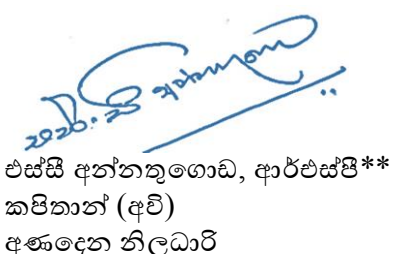 එස්සී අන්නතුගොඩ, ආර්එස්පී**
කපිතාන් (අවි)
අණදෙන නිලධාරි